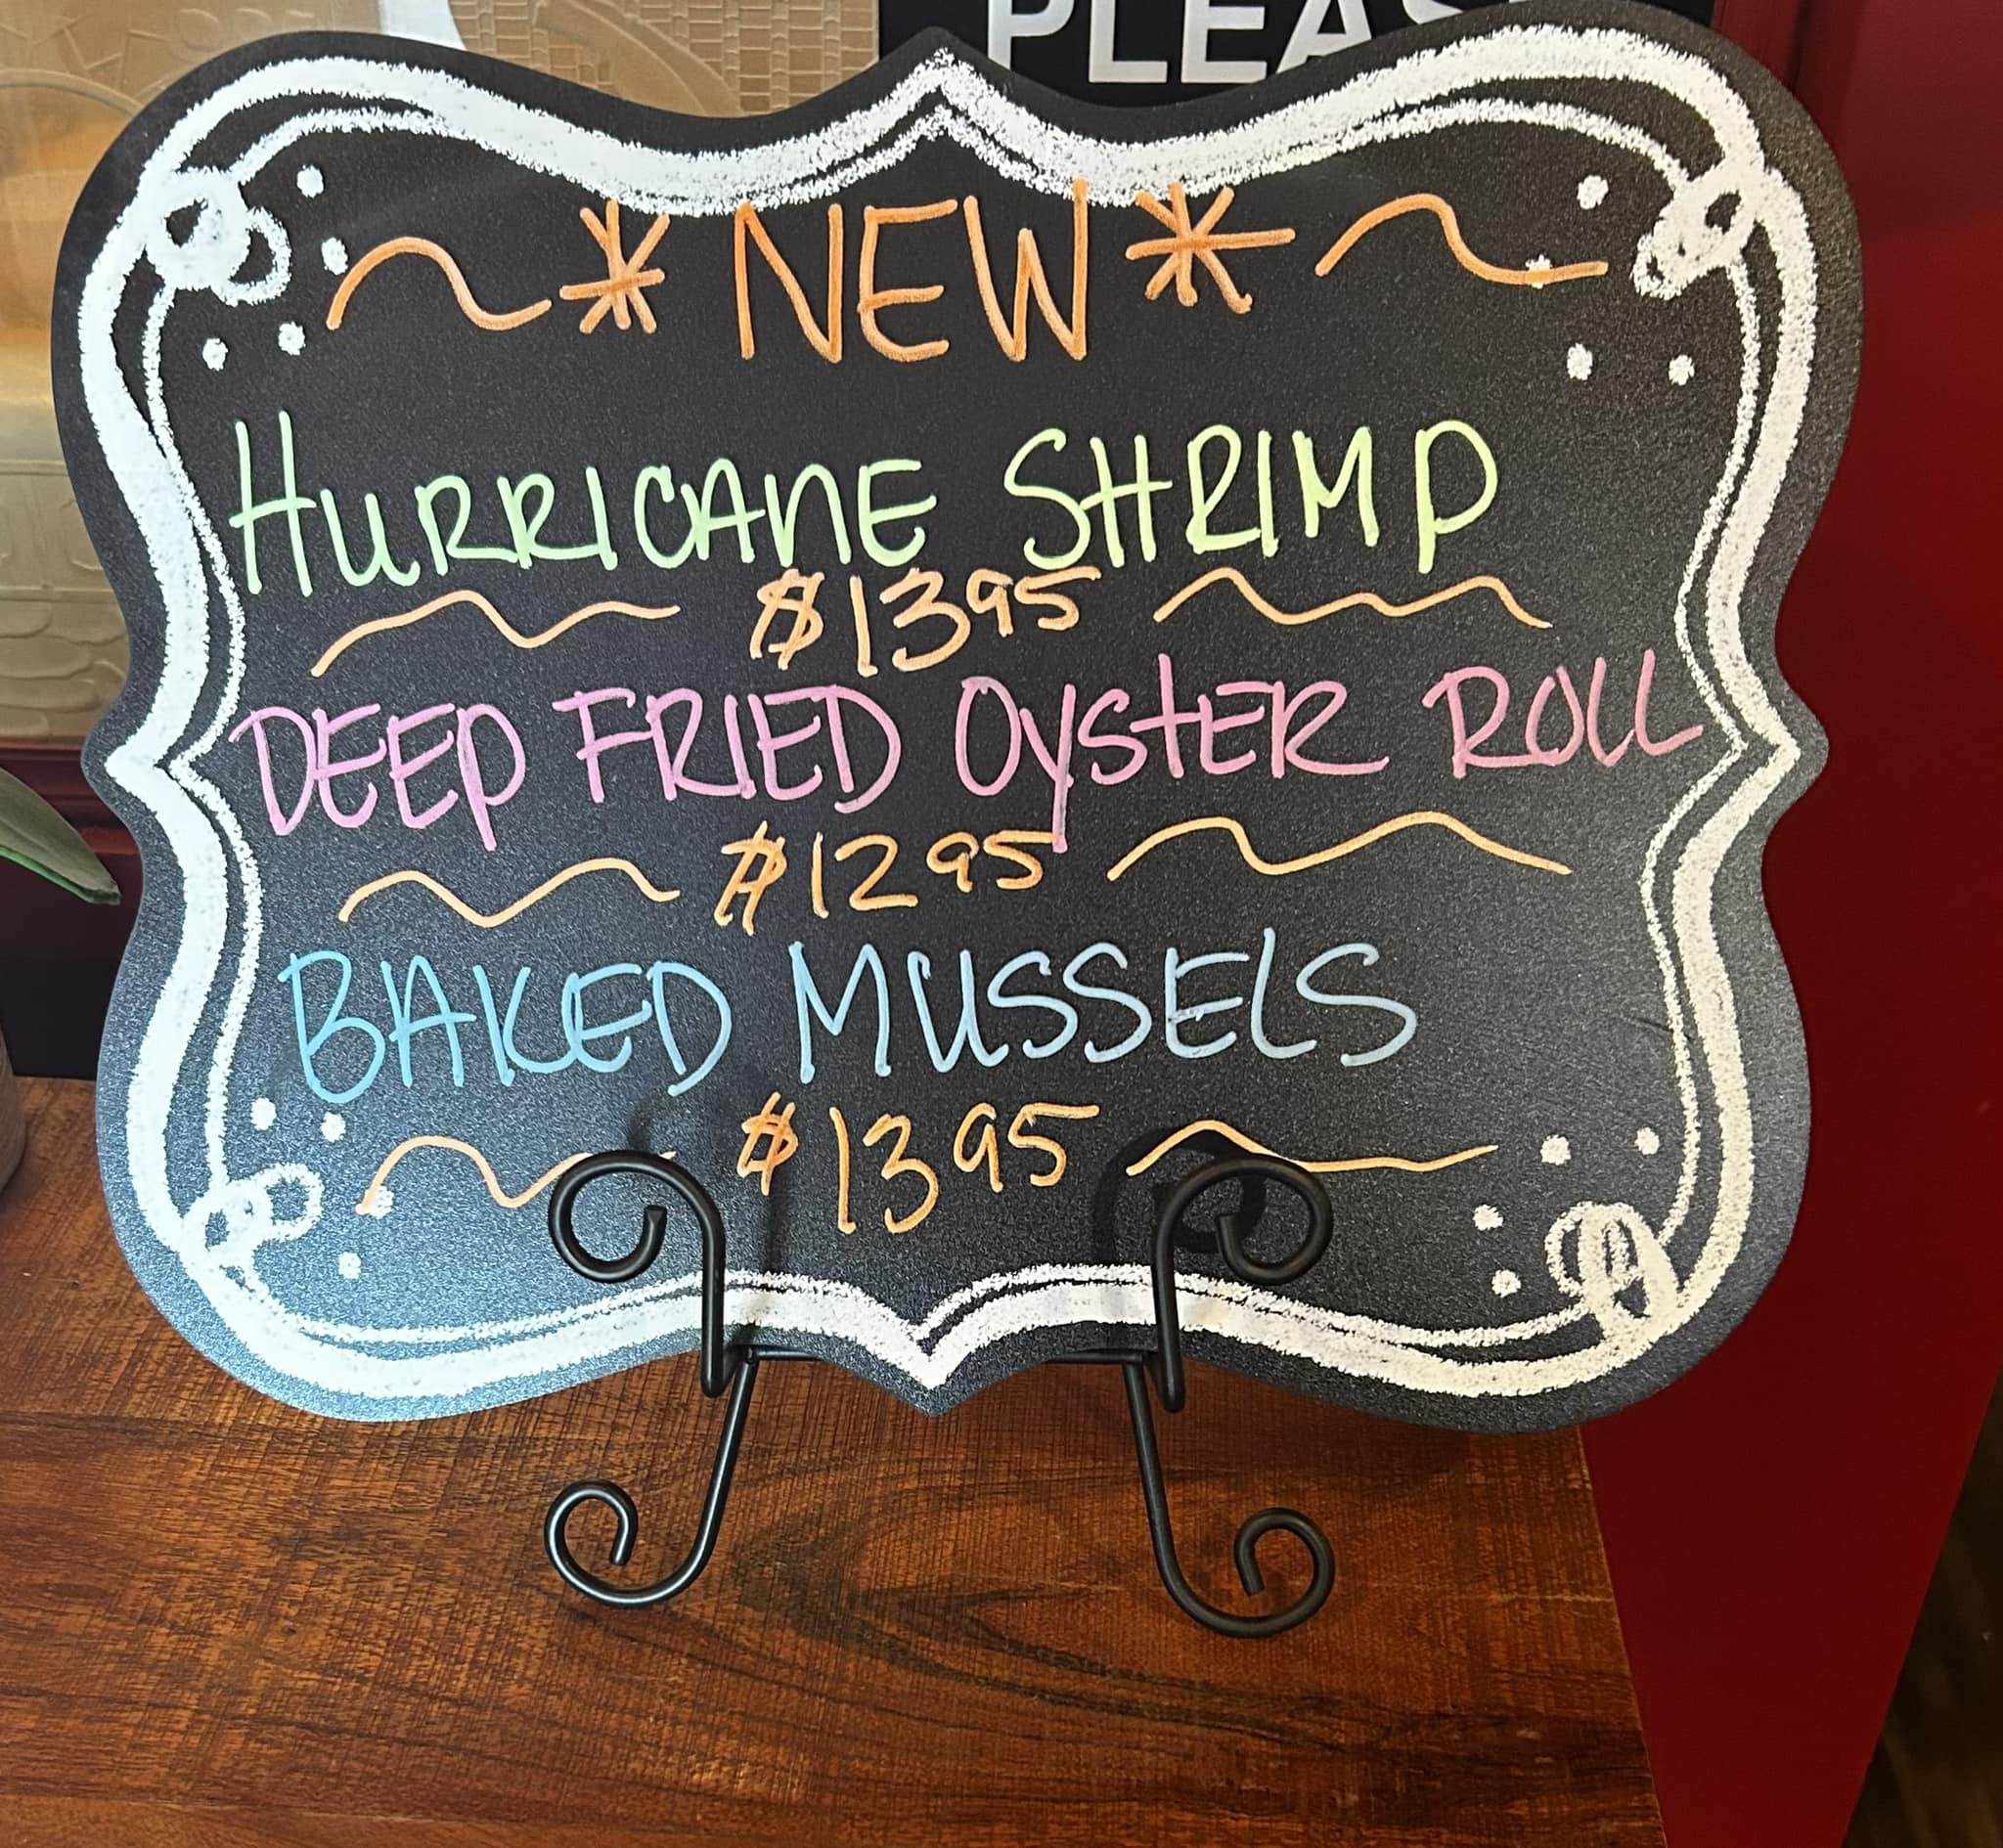 PLEAS
* NEW *
HURRICANE SHRIMP
$13 95
DEEP FRIED OYSTER ROLL
$12 95
BAKED MUSSELS
$13 95